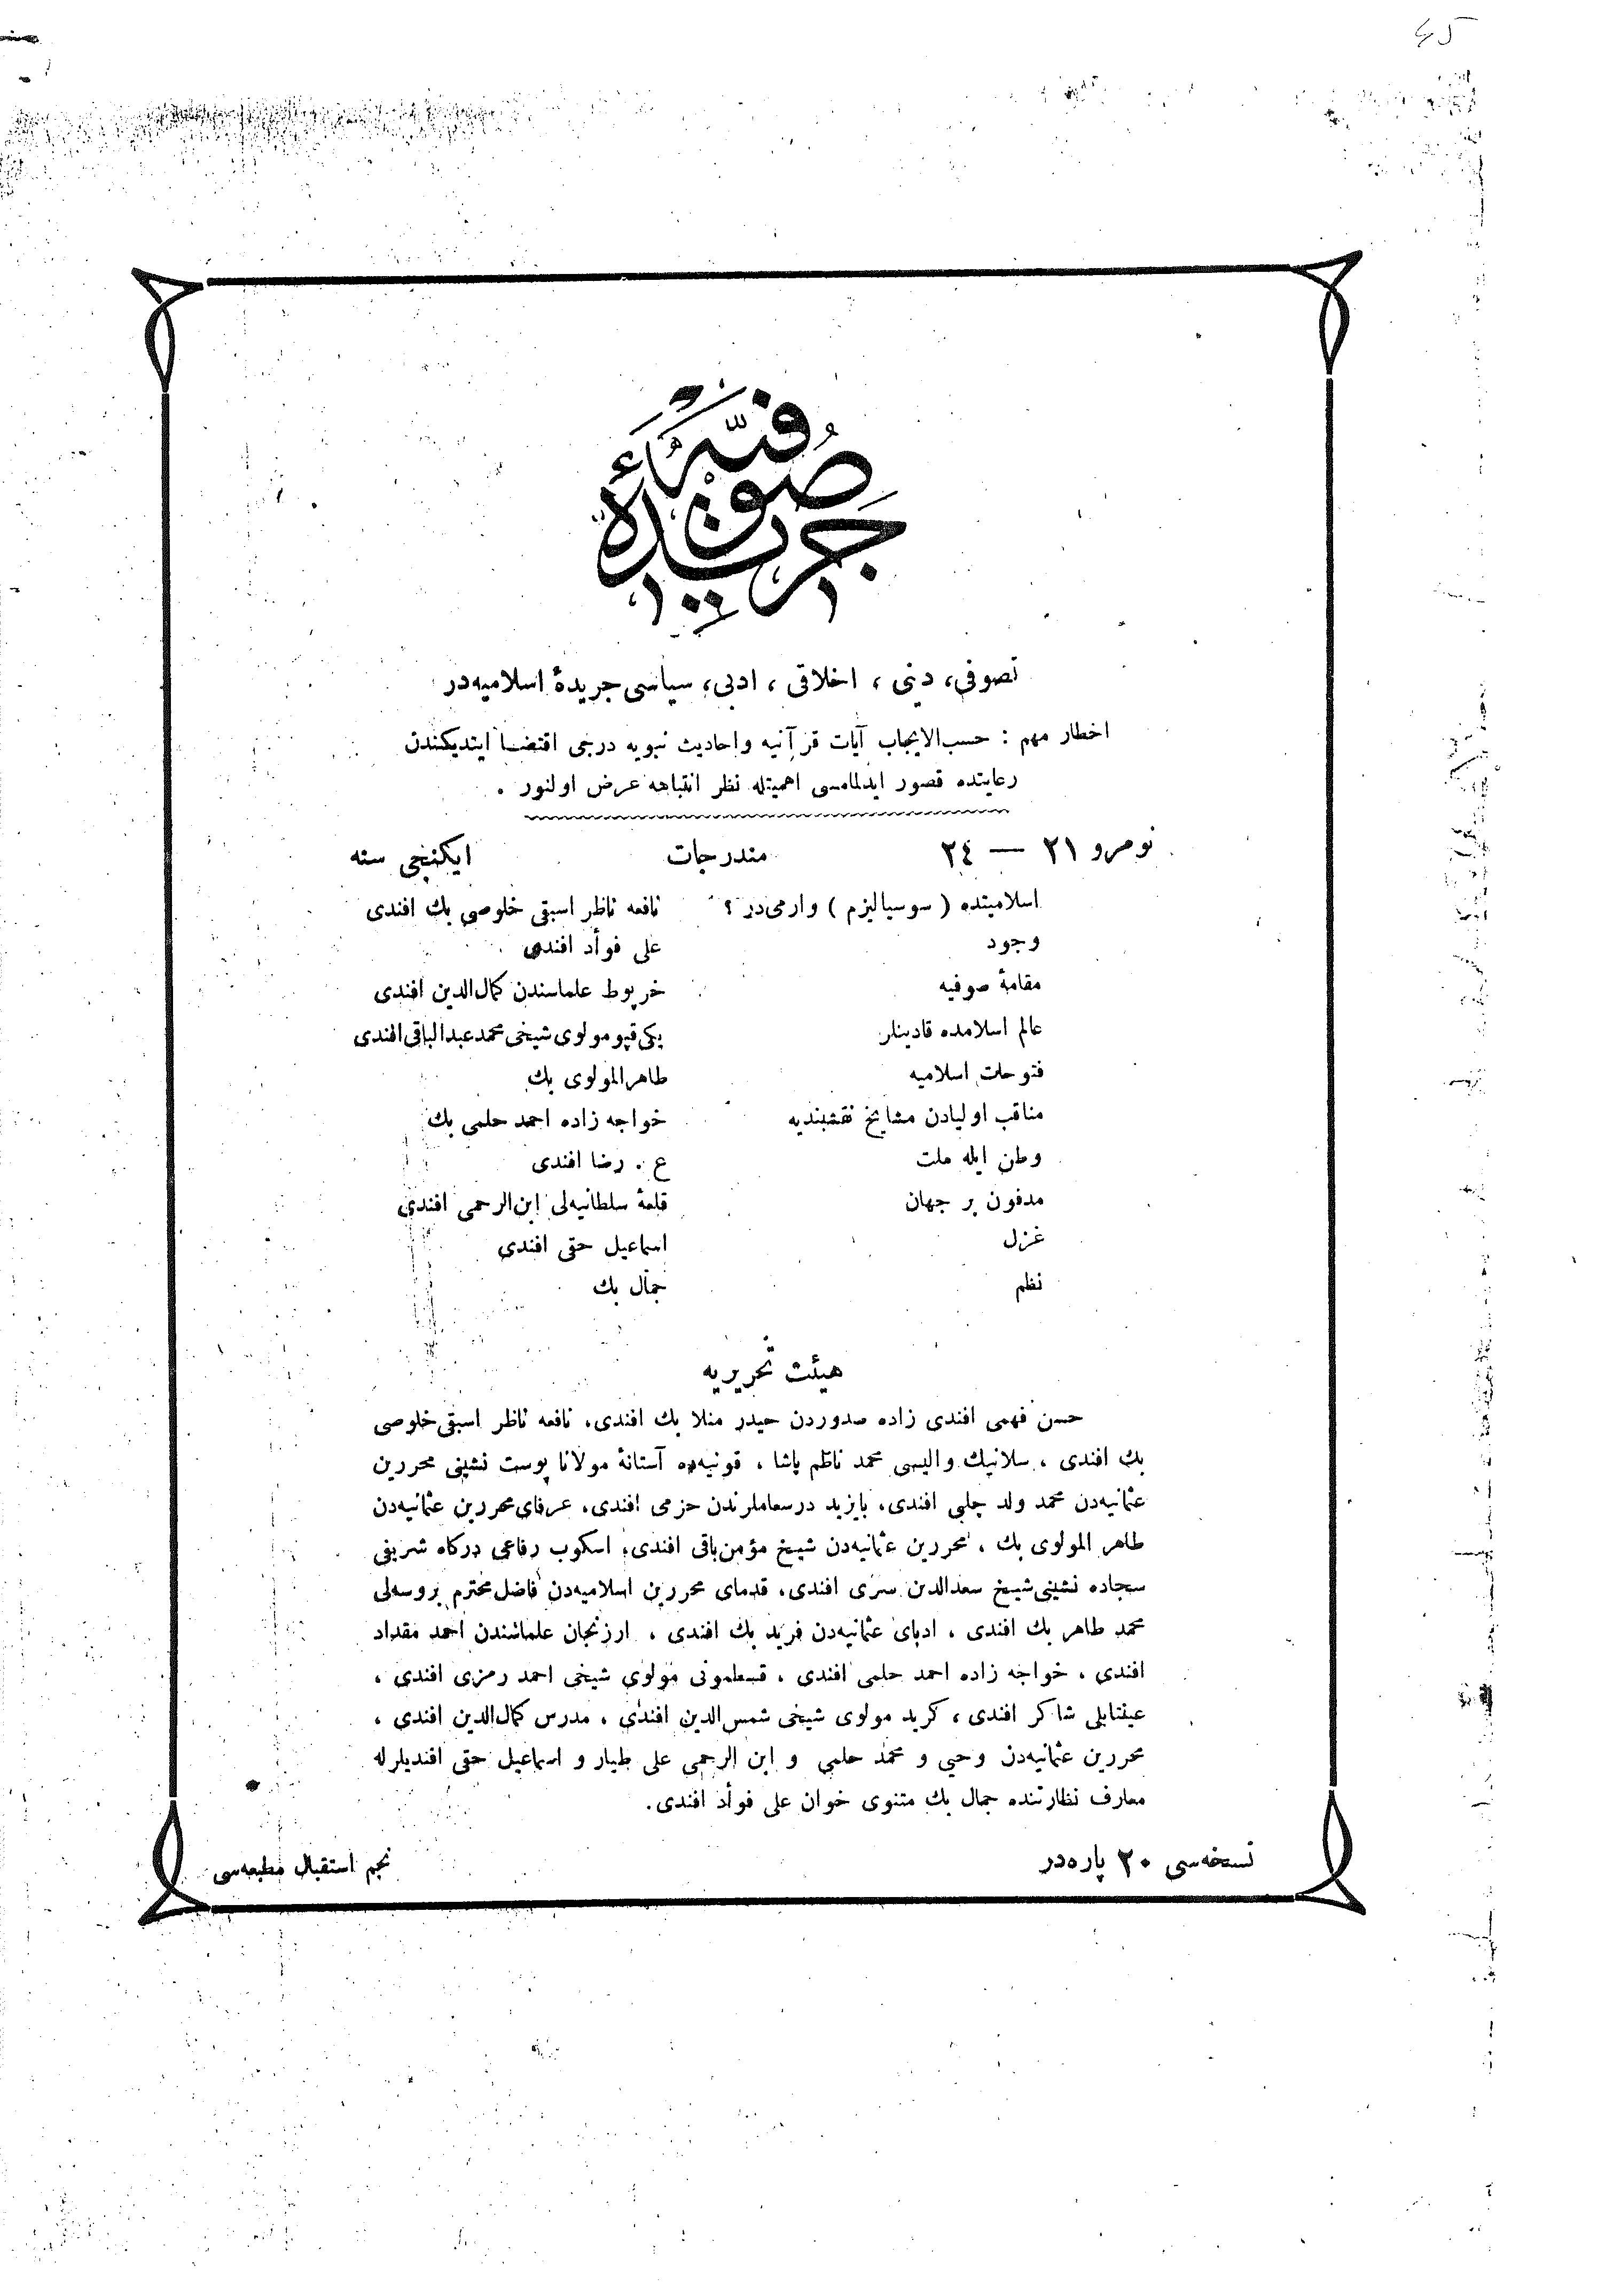 جريدۀ صوفيه
تصوفی، دینی ، اخلاقی ، ادبی، سیاسی جریدۀ اسلامیه‌در
اخطار مهم : حسب‌الایجاب آیات قرآنیه واحادیث نبویه درجی اقتضا ایتدیکندن
رعایتده قصور ایدلمامسی اهمیتله نظر انتباهه عرض اولنور .
نومرو ٢١ — ٢٤ مندرجات ایکنجی سنه
اسلامیتده ( سوسیالیزم ) وارمی‌در ؟ نافعه ناظر اسبقی خلوصی بك افندی
وجود علی فوأد افندی
مقامۀ صوفیه خرپوط علماسندن کمال‌الدین افندی
عالم اسلامده قادینلر یکی‌قپو مولوی شیخی محمد عبدالباقی افندی
فتوحات اسلامیه طاهرالمولوی بك
مناقب اولیادن مشایخ نقشبندیه خواجه زاده احمد حلمی بك
وطن ایله ملت ع . رضا افندی
مدفون بر جهان قلعۀ سلطانیه‌لی ابن‌الرحمی افندی
غزل اسماعیل حقی افندی
نظم جمال بك
هیئت تحریریه
حسن فهمی افندی زاده صدوردن حیدر منلا بك افندی، نافعه ناظر اسبقی خلوصی
بك افندی ، سلانیك والیسی محمد ناظم پاشا ، قونیه‌ده آستانۀ مولانا پوست نشینی محررین
عثمانیه‌دن محمد ولد چلبی افندی، بایزید درسعاملرندن حزمی افندی، عرفای محررین عثمانیه‌دن
طاهر المولوی بك ، محررین عثمانیه‌دن شیخ مؤمن باقی افندی، اسکوب رفاعی درکاه شریفی
سجاده نشینی شیخ سعدالدین سری افندی، قدمای محررین اسلامیه‌دن فاضل محترم بروسه‌لی
محمد طاهر بك افندی ، ادبای عثمانیه‌دن فرید بك افندی ، ارزنجان علماسندن احمد مقداد
افندی ، خواجه زاده احمد حلمی افندی ، قسطمونی مولوی شیخی احمد رمزی افندی ،
عینتابلی شاکر افندی ، کرید مولوی شیخی شمس‌الدین افندی ، مدرس کمال‌الدین افندی ،
محررین عثمانیه‌دن وحیی و محمد حلمی و ابن الرحمی علی طیار و اسماعیل حقی افندیلرله
معارف نظارتنده جمال بك مثنوی خوان علی فوأد افندی.
نسخه‌سی ٢٠ پاره‌در نجم استقبال مطبعه‌سی